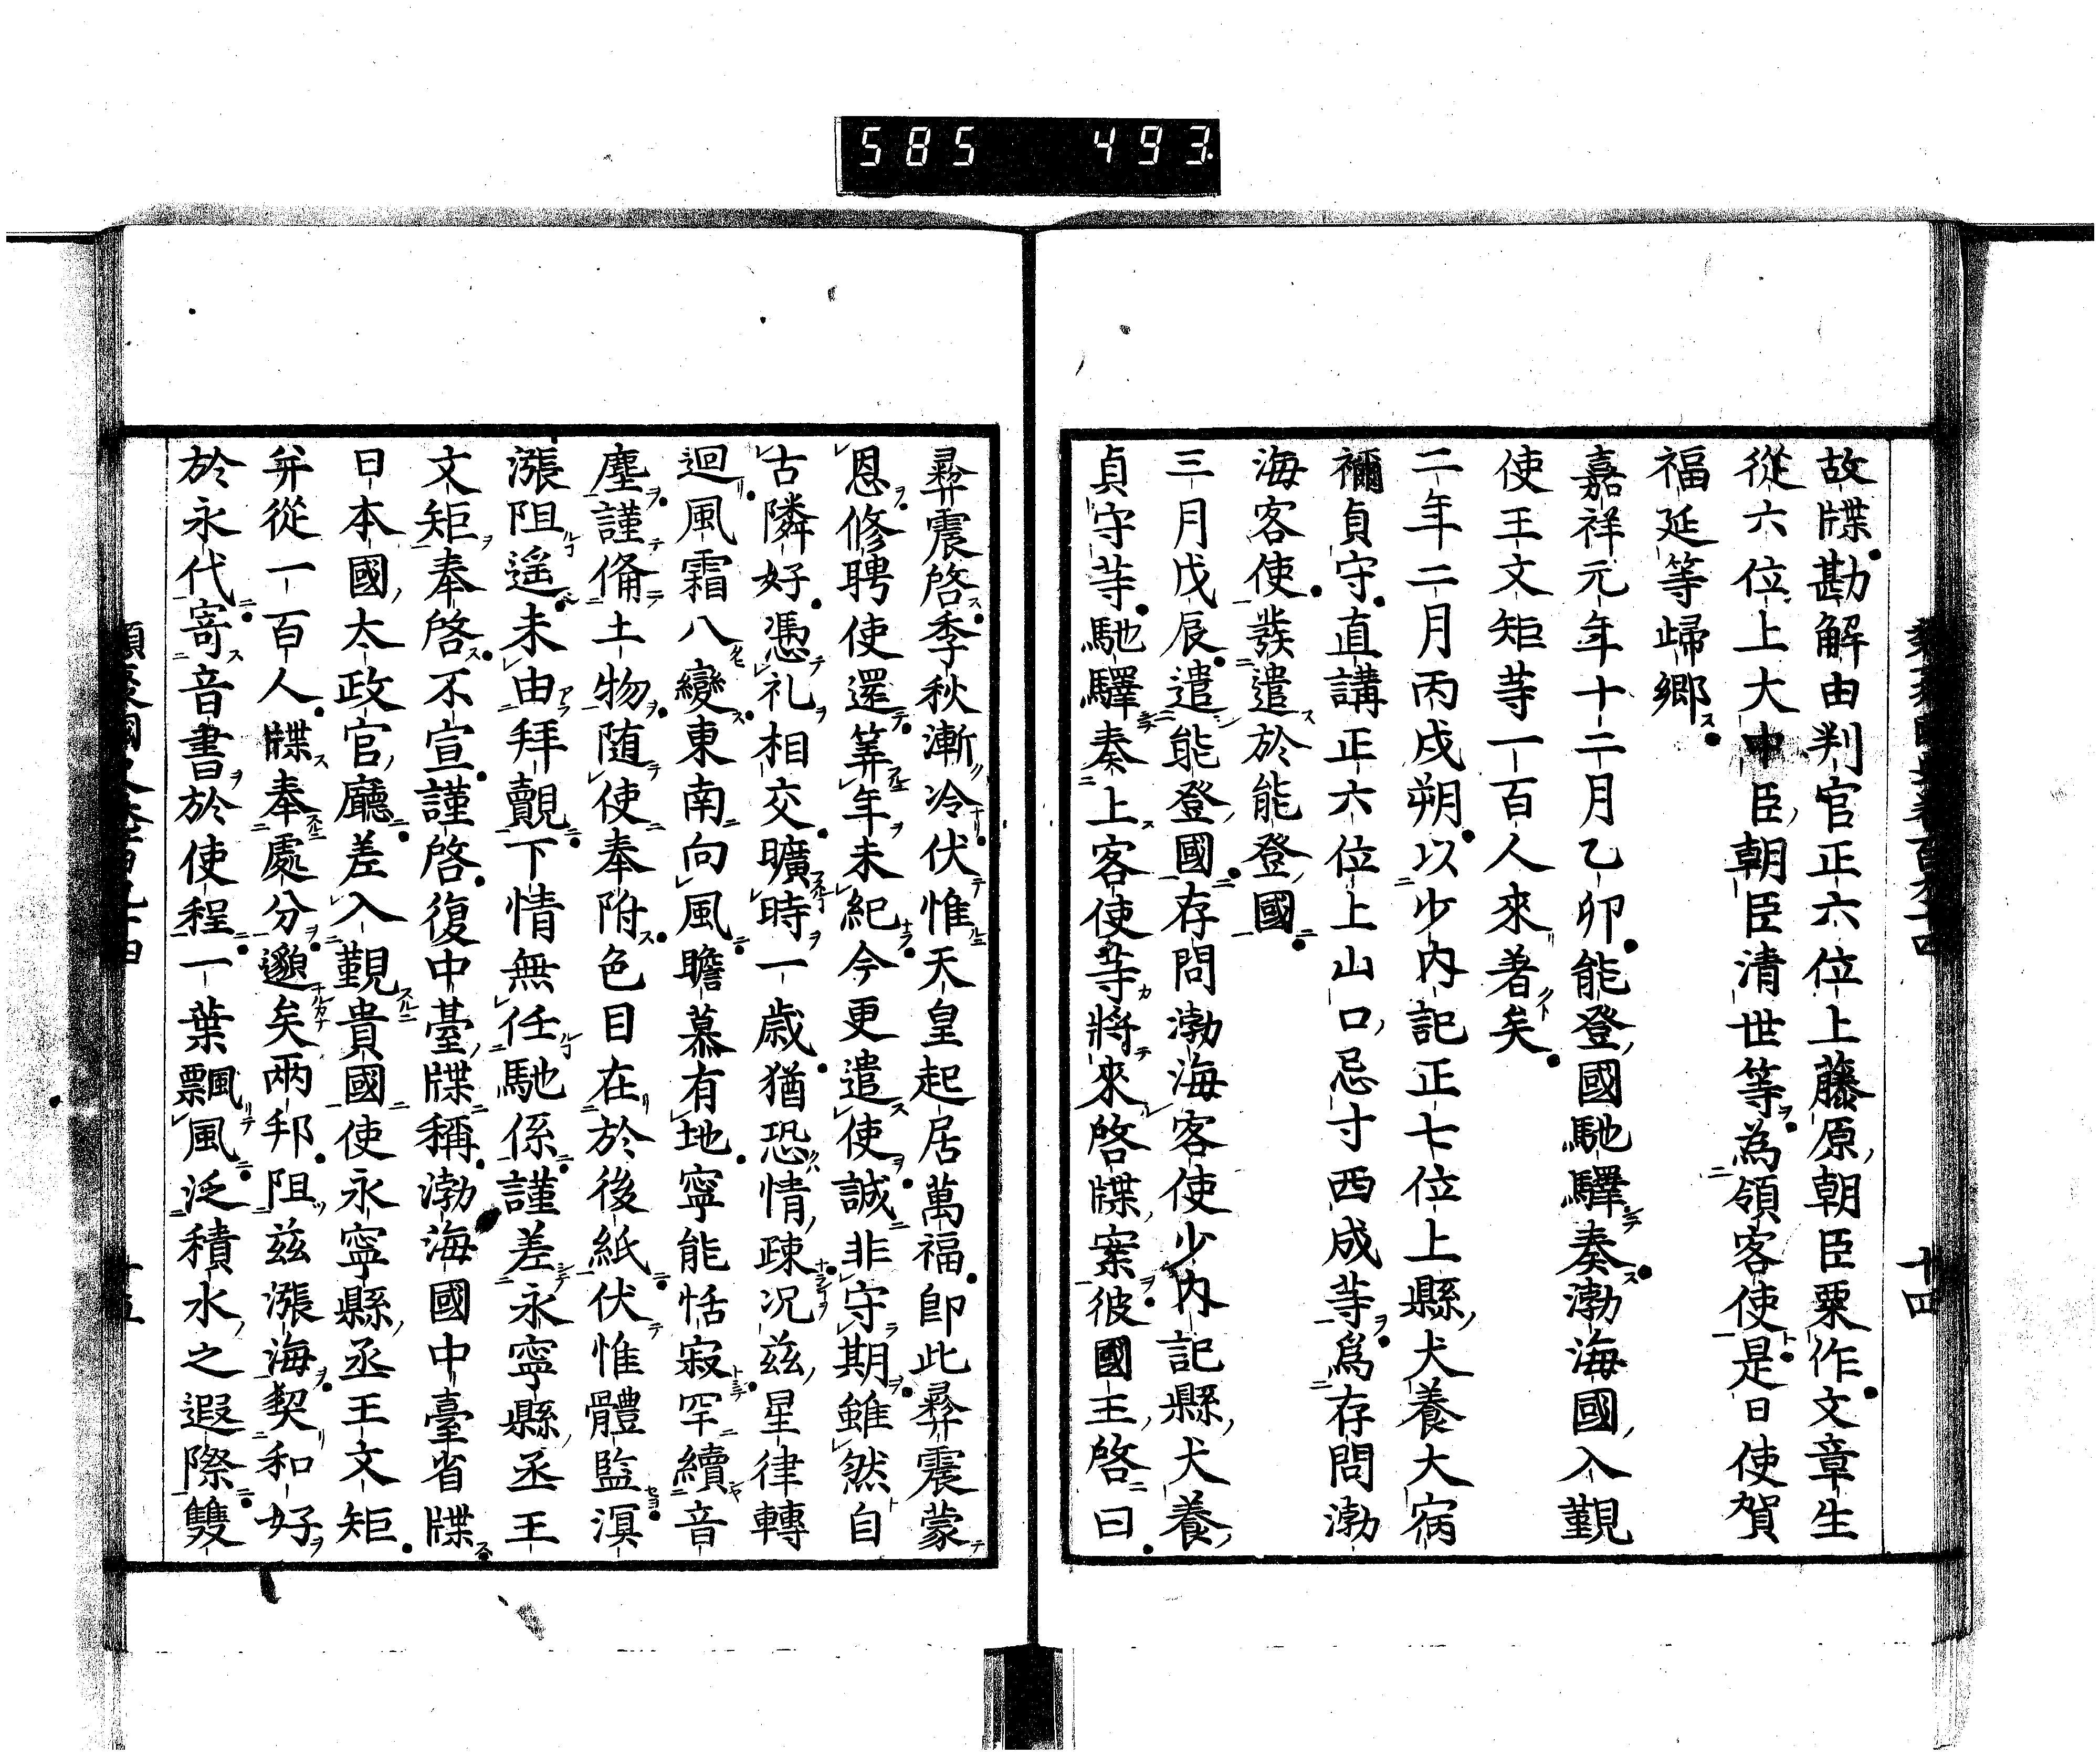 585 493
故牒勘解由判官正六位上藤原朝臣粟作文章生
從六位上大中臣朝臣清世等為領客使是日使賀
福延等歸郷
嘉祥元年十二月乙卯能登國馳驛奏渤海國入覲
使王文矩等一百人來著矣
二年二月丙戌朔以少内記正七位上縣犬養大宿
禰貞守直講正六位上山口忌寸西成等爲存問渤
海客使發遣於能登國
三月戊辰遣能登國存問渤海客使少内記縣犬養
貞守等馳驛奏上客使等將來啓牒案彼國王啓曰
彛震啓季秋漸冷伏惟天皇起居萬福即此彛震蒙
恩修聘使還筭年未紀今更遣使誠非守期雖然自
古隣好憑礼相交曠時一歳猶恐情疎况茲星律轉
迴風霜八變東南向風瞻慕有地寧能恬寂罕續音
塵謹備土物随使奉附色目在於後紙伏惟體監溟
漲阻遥未由拜覿下情無任馳係謹差永寧縣丞王
文矩奉啓不宣謹啓復中臺牒稱渤海國中臺省牒
日本國太政官廳差入覲貴國使永寧縣丞王文矩
并從一百人牒奉處分邈矣兩邦阻茲漲海契和好
於永代寄音書於使程一葉飄風泛積水之遐際雙